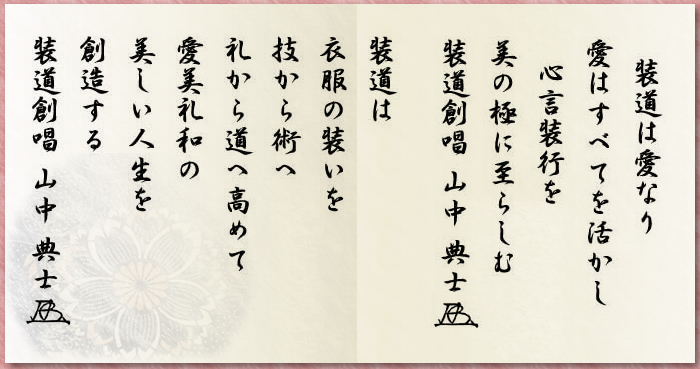 装道は愛なり
愛はすべてを活かし
心言装行を
美の極に至らしむ
装道創唱 山中 典士
装道は
衣服の装いを
技から術へ
礼から道へ高めて
愛美礼和の
美しい人生を
創造する
装道創唱 山中 典士